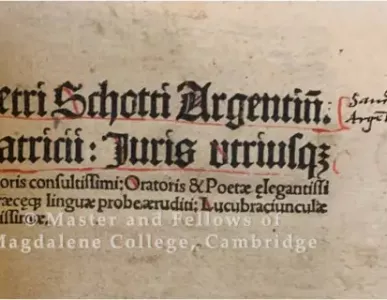 etri Schotti Argentiñ.
atricii: Juris vtriusqꝫ
oris consultissimi: Oratoris & Poetæ elegantissi
ræcęqꝫ linguæ probe æruditi: Lucubraciunculæ
issimæ,
© Master and Fellows of
Magdalene College, Cambridge